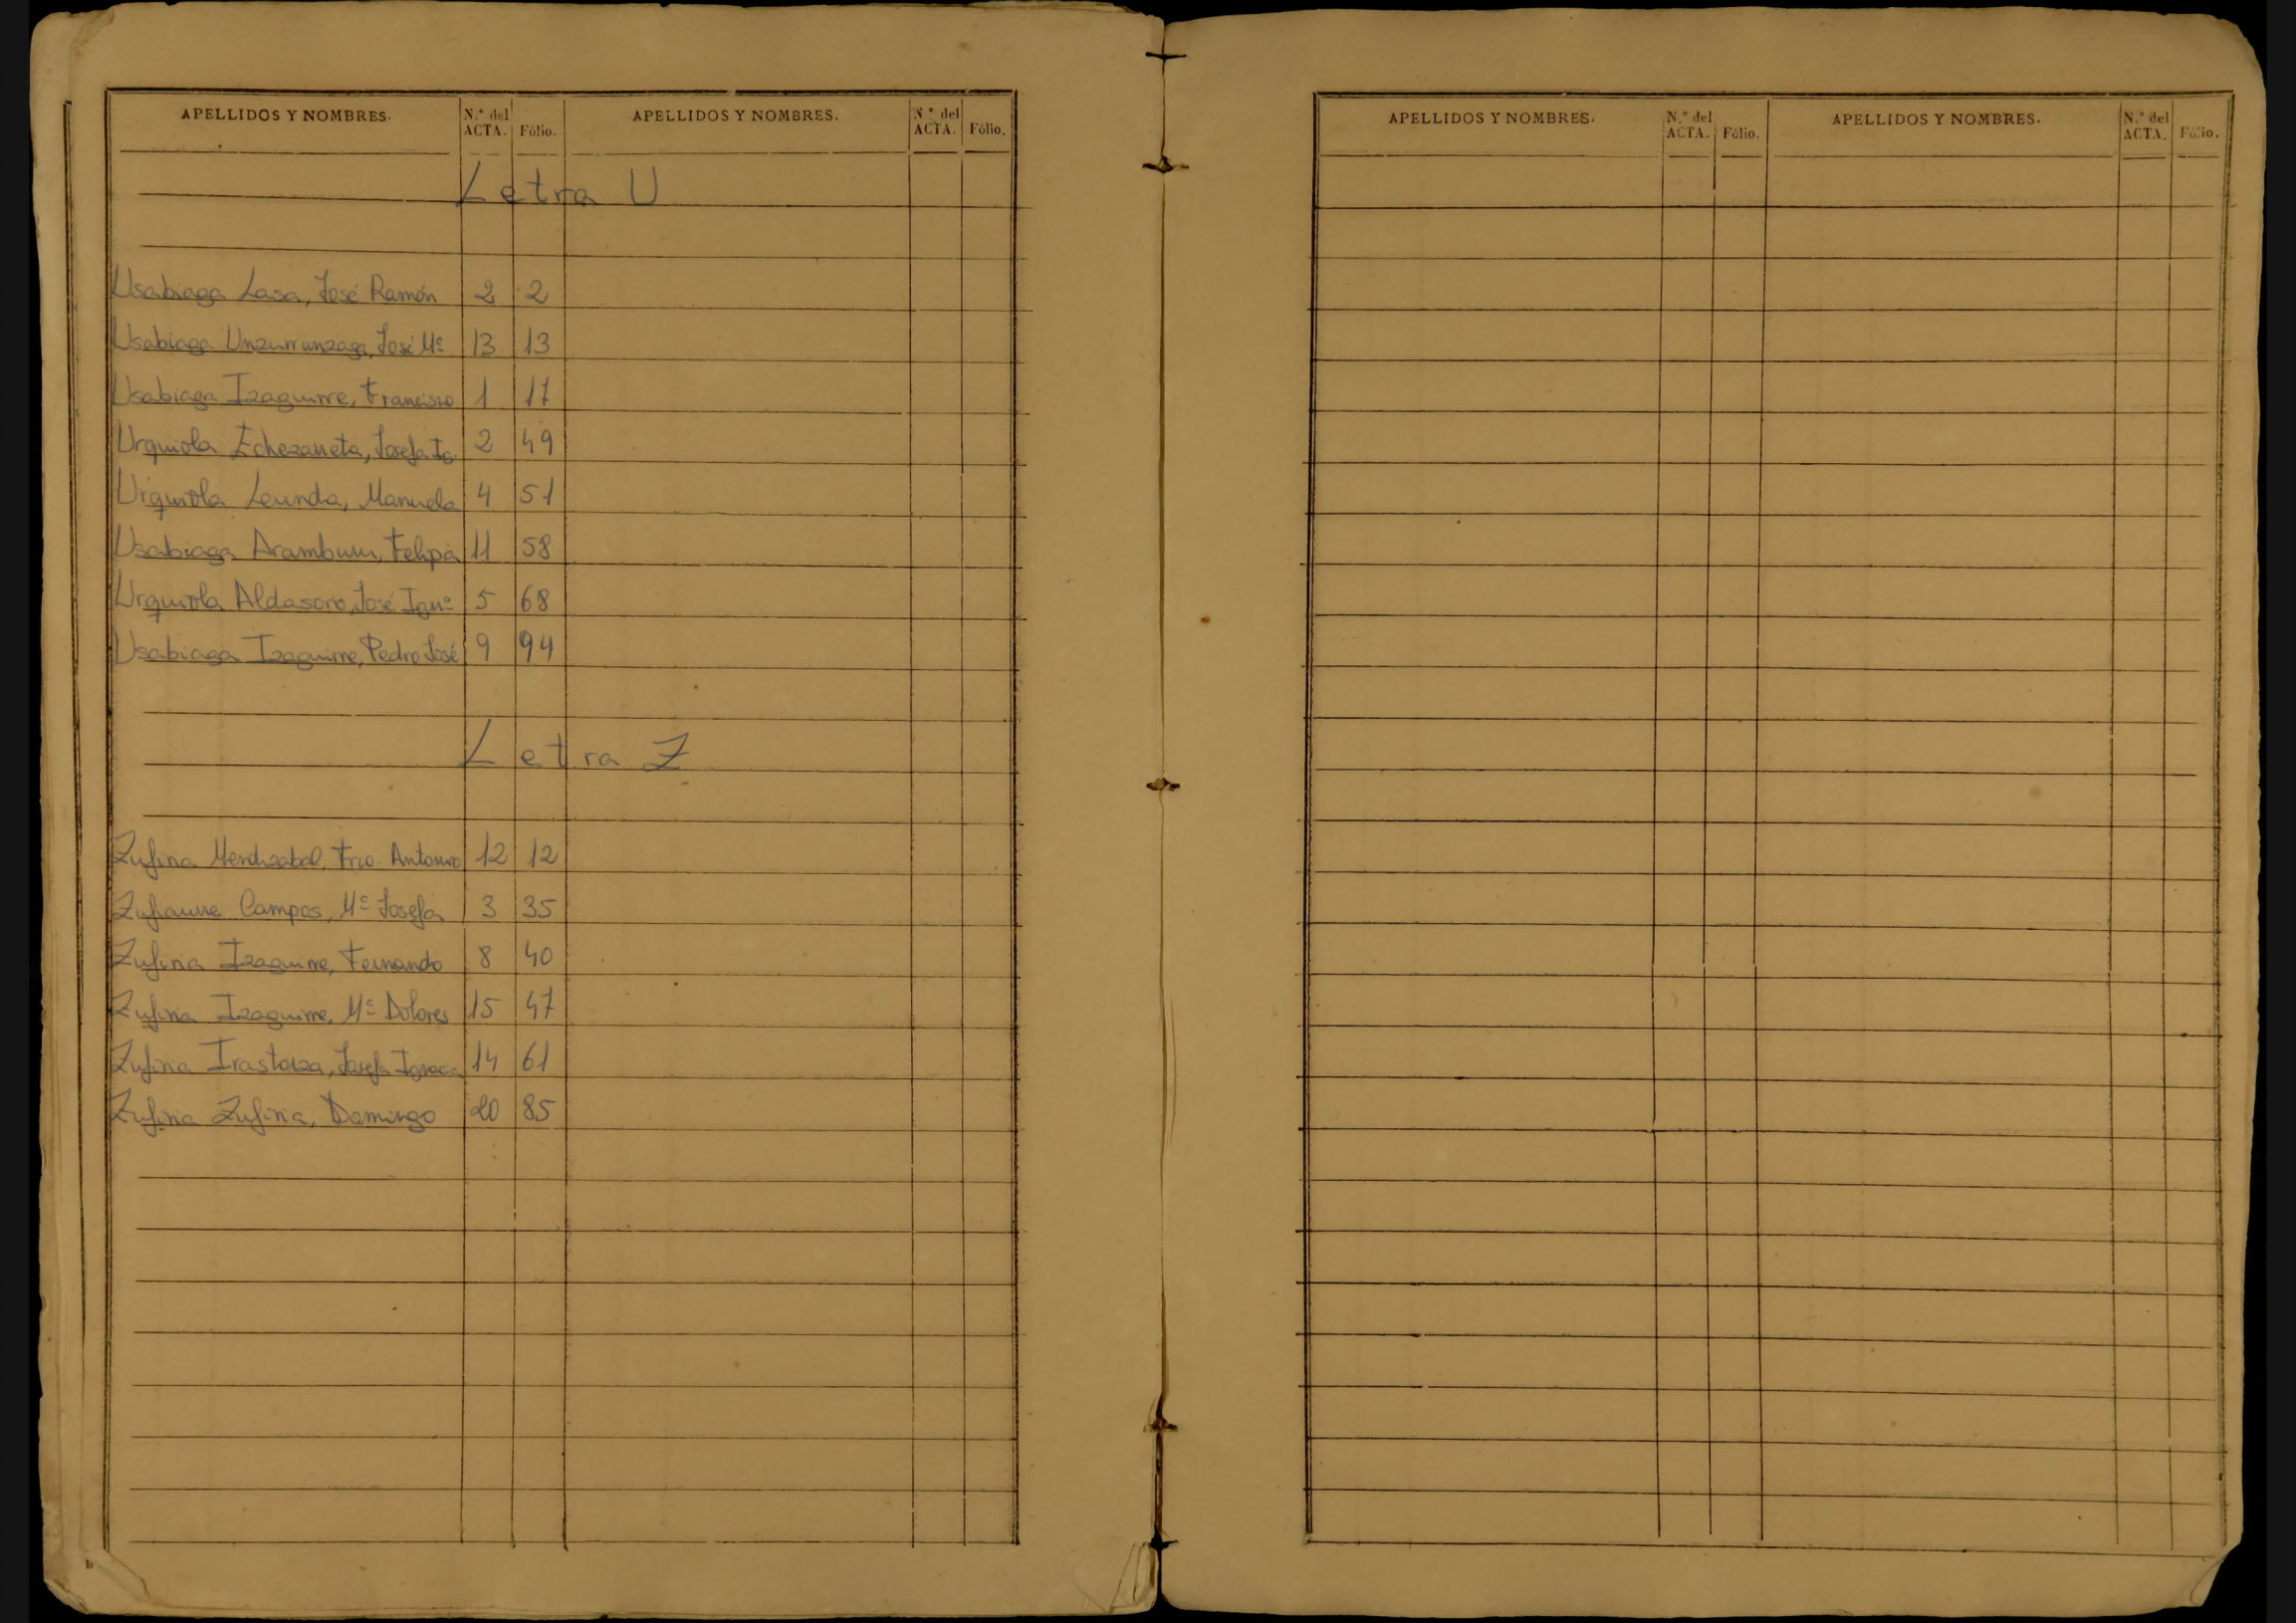 APELLIDOS Y NOMBRES. N.º del ACTA. Fólio. APELLIDOS Y NOMBRES. N.º del ACTA. Fólio.
Letra U
Usabiaga Lasa, José Ramón 2 2
Usabiaga Unzurrunzaga, José Mª 13 13
Usabiaga Izaguirre, Francisco 1 17
Urquiola Echezarreta, Josefa Ig. 2 49
Urquiola Leunda, Manuela 4 51
Usabiaga Aramburu, Felipa 11 58
Urquiola Aldasoro, José Ignº 5 68
Usabiaga Izaguirre, Pedro José 9 94
Letra Z
Zufiria Mendizabal, Frco. Antonio 12 12
Zufiaurre Campos, Mª Josefa 3 35
Zufiria Izaguirre, Fernando 8 40
Zufiria Izaguirre, Mª Dolores 15 47
Zufiria Irastorza, Josefa Ignacia 14 61
Zufiria Zufiria, Domingo 20 85
APELLIDOS Y NOMBRES. N.º del ACTA. Fólio. APELLIDOS Y NOMBRES. N.º del ACTA. Fólio.